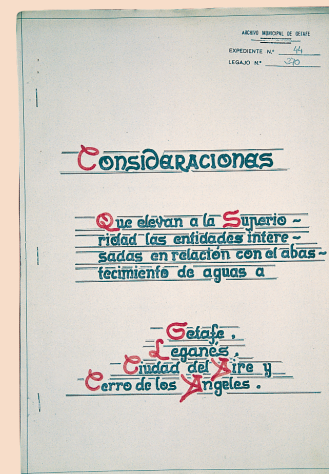 ARCHIVO MUNICIPAL DE GETAFE
EXPEDIENTE N.º 44
LEGAJO N.º 290
Consideraciones
Que elevan a la Superio-
ridad las entidades intere-
sadas en relación con el abas-
tecimiento de aguas a
Getafe.
Leganés.
Ciudad del Aire y
Cerro de los Angeles.